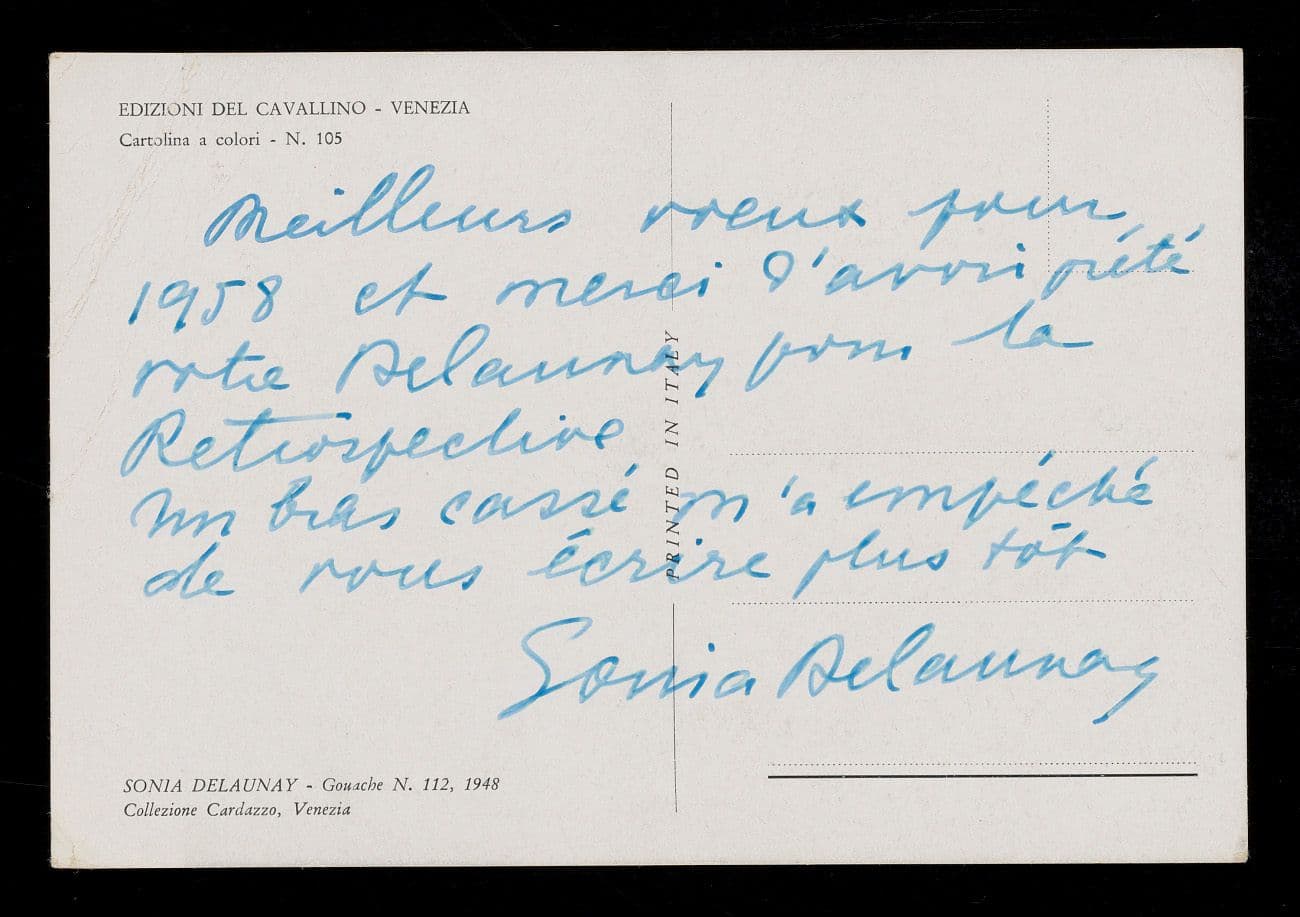 EDIZIONI DEL CAVALLINO - VENEZIA
Cartolina a colori - N. 105
Meilleurs voeux pour
1958 et merci d'avoir prêté
votre Delaunay pour la
Retrospective
Un bras cassé m'a empéché
de vous écrire plus tôt
Sonia Delaunay
PRINTED IN ITALY
SONIA DELAUNAY - Gouache N. 112, 1948
Collezione Cardazzo, Venezia